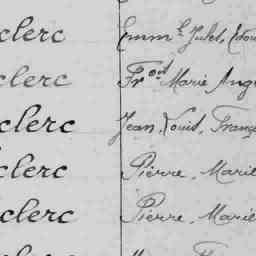 clerc Emm.l Jules, Edou
clerc Fr.ois Marie Ang
clerc Jean, Louis, Franç
clerc Pierre, Marie
clerc Pierre, Marie
clerc